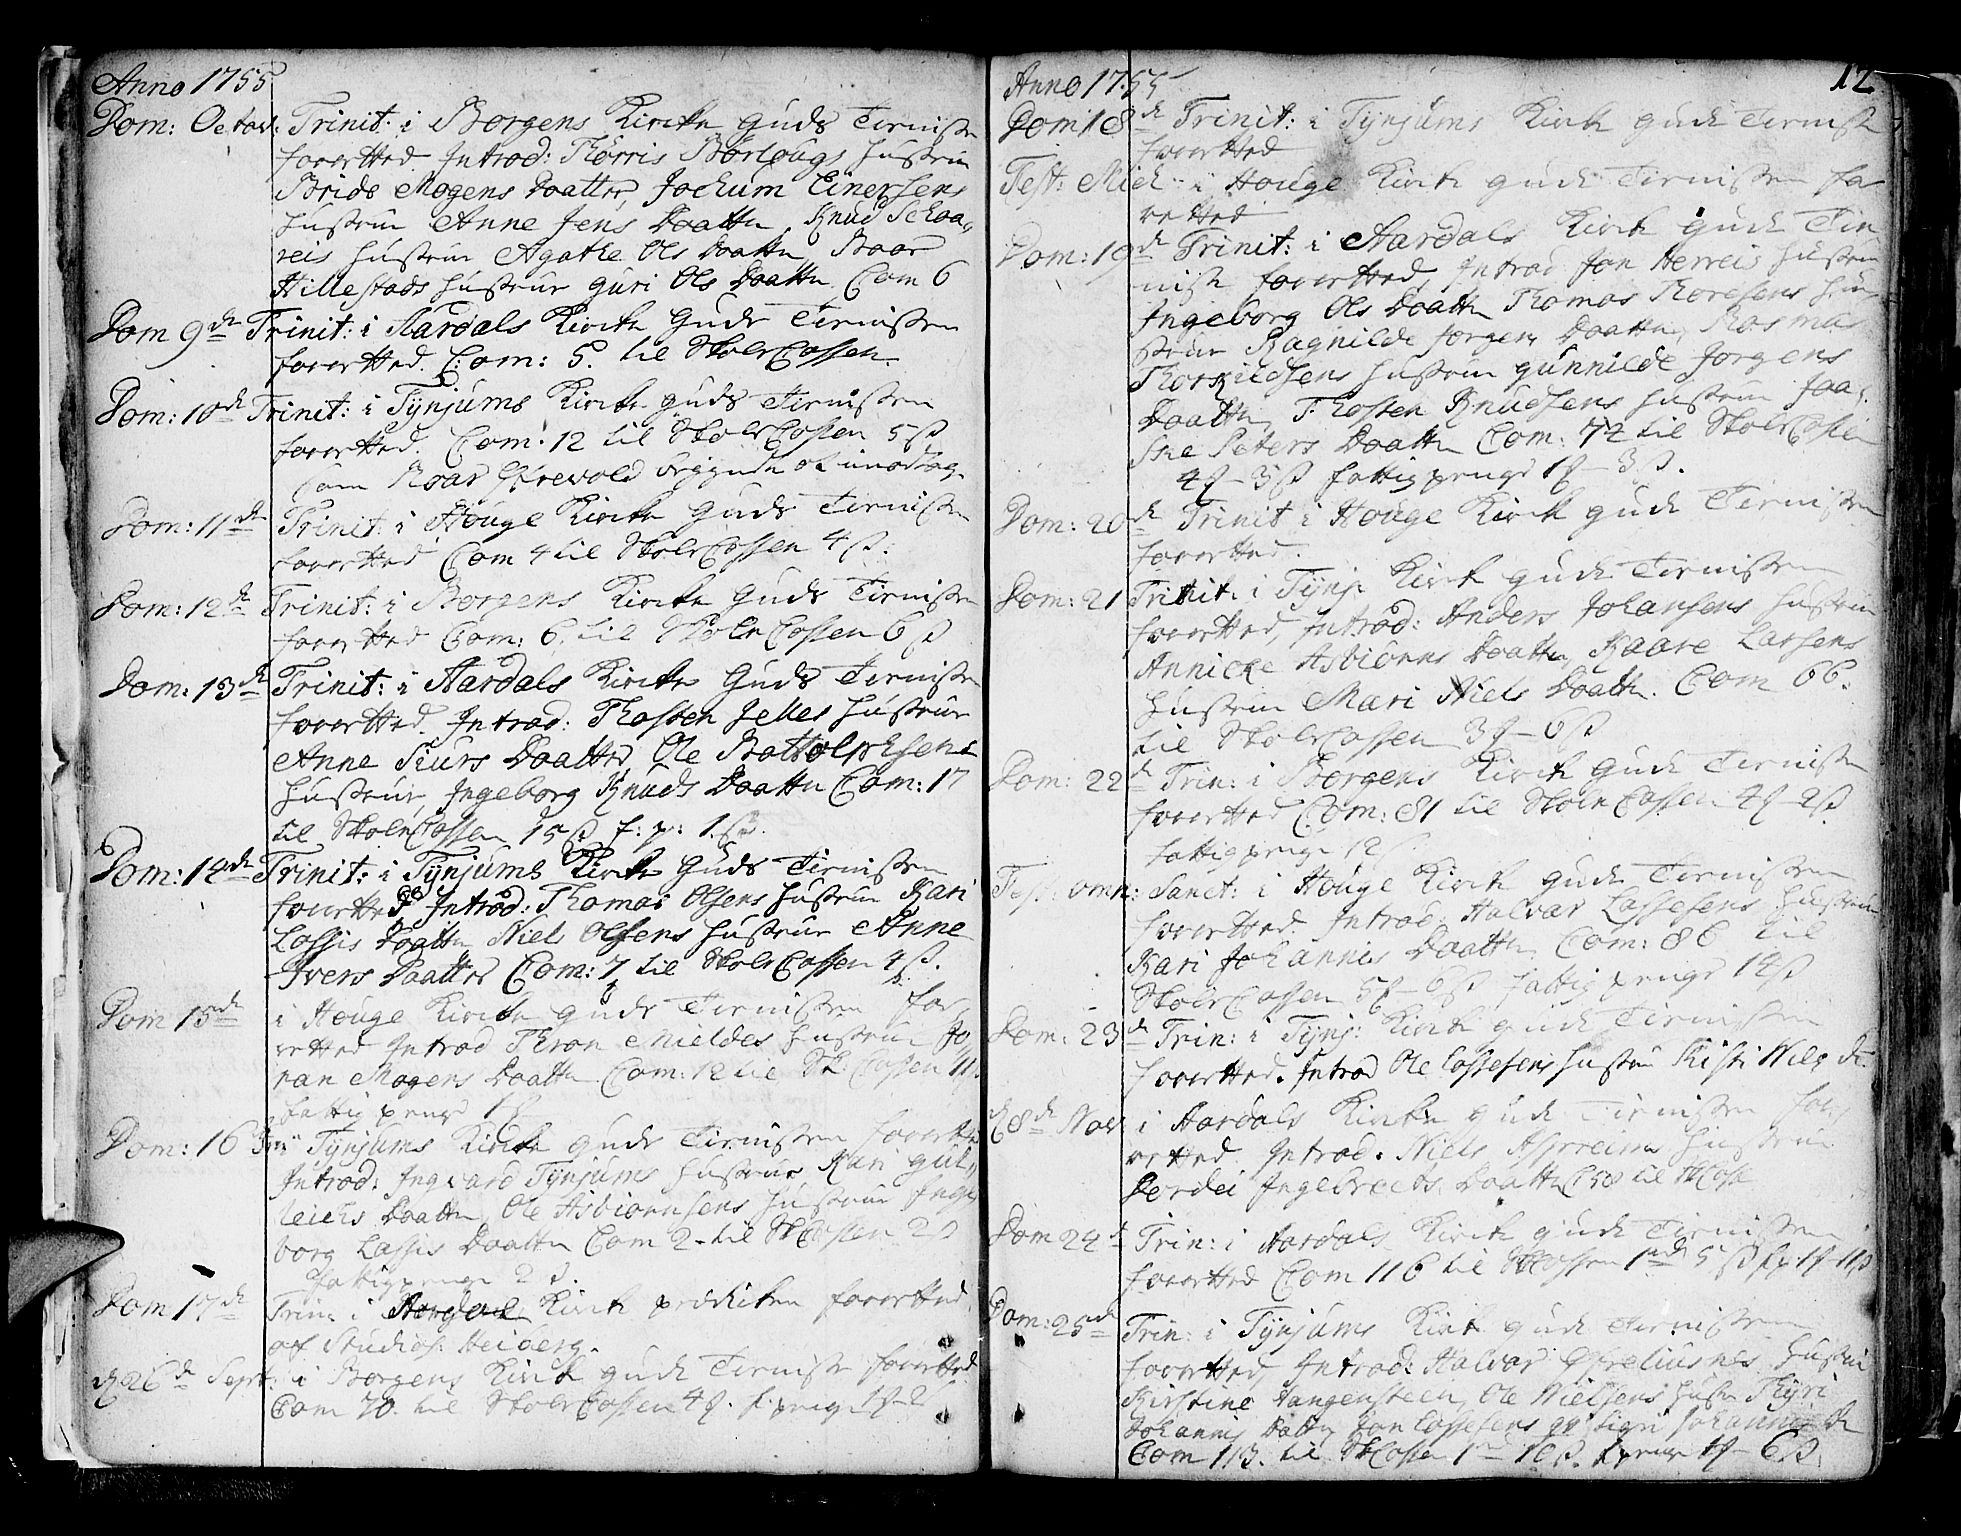 Anno 1755
Dom: Octav: Trinit: i Borgens Kircke Guds Tienniste
forretted Introd: Thorris Borlougs Hustrue
Bride Mogens Daatter, Jochum Einersens
Hustrue Anne Jens Daatter, Knud Schaa,,
reis Hustrue Agathe Ols Daatter, Roar
Hillestads Hustrue Guri Ols Daatter. Com 6
Dom 9de Trinit: i Aardals Kircke Guds Tiennisten
forretted. Com: 5. til SkoleCassen.
Dom: 10de Trinit: i Tynjums Kircke Guds Tiennisten
forretted. Com: 12 til SkoleCassen 5 ß
Roar begynde at imodtag.
Dom: 11de Trinit: i Houge Kircke Guds Tiennisten
forretted Com 4 til SkoleCassen 4 ß.
Dom: 12de Trinit: i Borgens Kircke Guds Tienniste
forretted Com: 6. til SkoleCassen 6 ß
Dom: 13de Trinit: i Aardals Kircke Guds Tienniste
forretted. Introd: Thosten Jelles Hustrue
Anne Siurs Daatter, Ole Hustrue, Ingeborg Knuds Daatter Com: 17
til SkoleCassen 15 ß f: p: 1 ß.
Dom: 14de Trinit: i Tynjums Kircke Guds Tiennisten
forretted Introd: Thomas Olsens Hustrue Kari
Lassis Daatter, Niels Olsens Hustrue Anne
Ivers Daatter Com: 7 til SkoleCassen 4 ß.
Dom 15de i Houge Kircke Guds Tiennisten for,,
retted Introd Thron Mieldes Hustrue Jo,,
ran Mogens Daatter. Com: 12 til Sk: Cassen 11 ß
fattig penge
Dom: 16 Trin: Tynjums Kircke Guds Tiennisten forretted
Introd: Ingvard Tynjums Hustrue Kari Gul,,
leichs Daatter, Ole Asbiørnsens Hustrue Inge,,
borg Lassis Daatter Com 2 til SkCassen 2 ß
fattigpenge 2 ß.
Dom 17de Trin: i Aardals Kirck prædicken forretted
af Studios: Heiberg.
d 26de Sept: i Borgens Kirck Guds Tienniste forretted
Com 70. til SkoleCassen
Anno 1755
12
Dom 18de Trinit: i Tynjums Kirck Guds Tienniste
forretted
Fest: Mich: i Houge Kirck Guds Tiennisten for
retted
Dom: 19de Trinit: i Aardals Kirck Guds Tien
niste forretted, Introd Jon Herreis Hustrue
Ingeborg Ols Daatter Thomas Thoresens Hu,,
strue Ragnilde Jørgens Daatter, Rasmus
Hustrue Gunnilde Jørgens
Daatter, Thosten Knudsens Hustrue Joa,,
Sne Peters Daatter Com: 72 til SkoleCassen
4 - 3 ß fattig penge 1 - 3 ß.
Dom: 20de Trinit i Houge Kirck Guds Tiennisten
forretted.
Dom: 21 Trinit: i Tynj: Kirck Guds Tiennisten
forretted, Introd: Anders Johansens Hustrue
Annicke Asbiørns Daatter, Kaare Larsens
Hustrue Mari Niels Daatter. Com 66.
til SkoleCassen 3 - 6 ß
Dom: 22de Trin: i Borgens Kirck Guds Tienniste
forretted Com: 81 til SkoleCassen 4 - 2 ß
fattig penge
Fest: omn: Sanct: i Houge Kirck Guds Tiennisten
forretted. Introd: Halvar Lassesens Hustrue
Kari Johannis Daatter. Com: 86 til
SkoleCassen 5 - 6 ß fattig penge 12 ß
Dom: 23de Trin: i Tynj: Kirck Guds Tiennisten
forretted. Introd Ole Lassesens Hustrue Kisti Niels D:
d 8de Nov i Aardals Kircke Guds Tiennisten for,,
retted. Introd. Niels Hustrue
Dordei Ingebrets Daatter C 58 til SkCasse
Dom 24de Trin: i Aardals Kirck Guds Tiennisten
forretted Com 116 til SkCassen 1 5 ß
Dom: 25de Trin: i Tynjums Kirck Guds Tiennisten
forretted, Introd: Halvar Hustrue
Kirstine Vangensteen, Ole Nielsens Hustr Thyri
Johannis Datter, Jon Lassesens Sigri Johannis D
Com 113. til SkCassen 1 10 ß. f penge 1 - 6 ß.